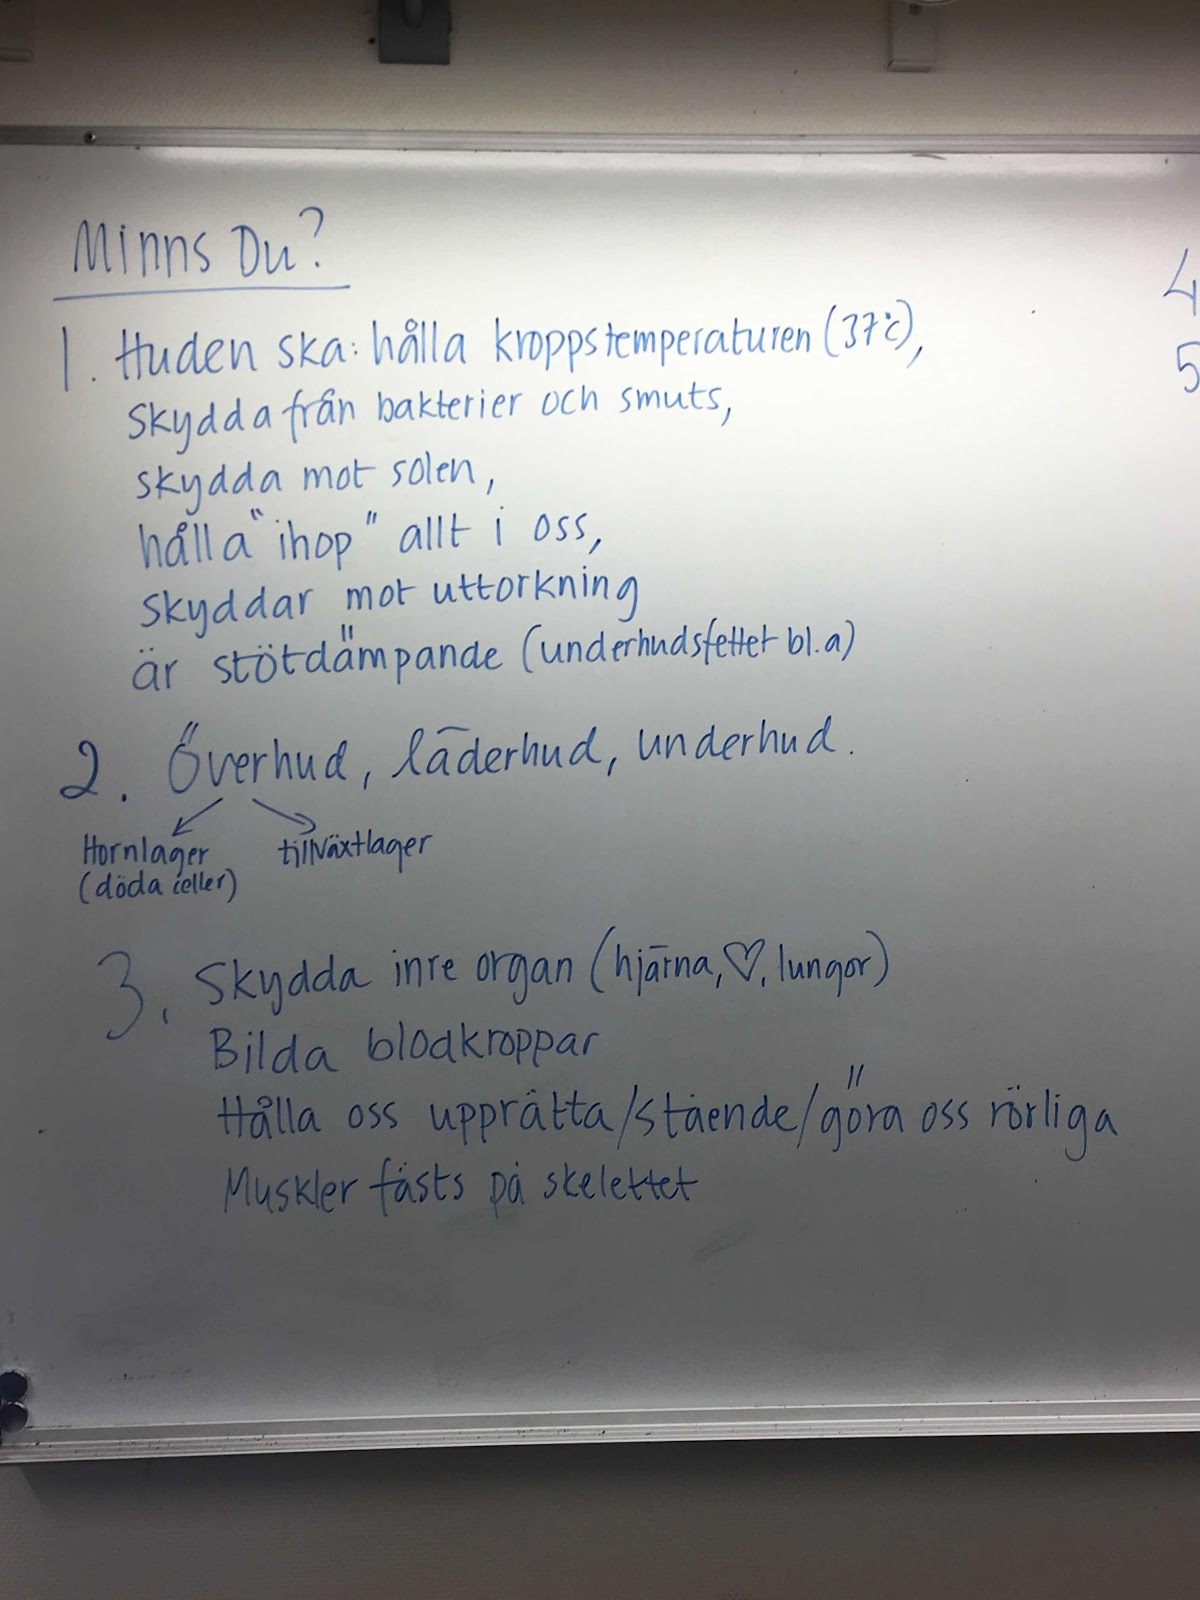 Minns Du?
1. Huden ska: hålla kroppstemperaturen (37°c),
skydda från bakterier och smuts,
skydda mot solen,
hålla "ihop" allt i oss,
skyddar mot uttorkning
är stötdämpande (underhudsfettet bl.a)
2. Överhud, läderhud, underhud.
Hornlager tillväxtlager
(döda celler)
3. Skydda inre organ (hjärna, ♡, lungor)
Bilda blodkroppar
Hålla oss upprätta/stående/göra oss rörliga
Muskler fästs på skelettet
4
5